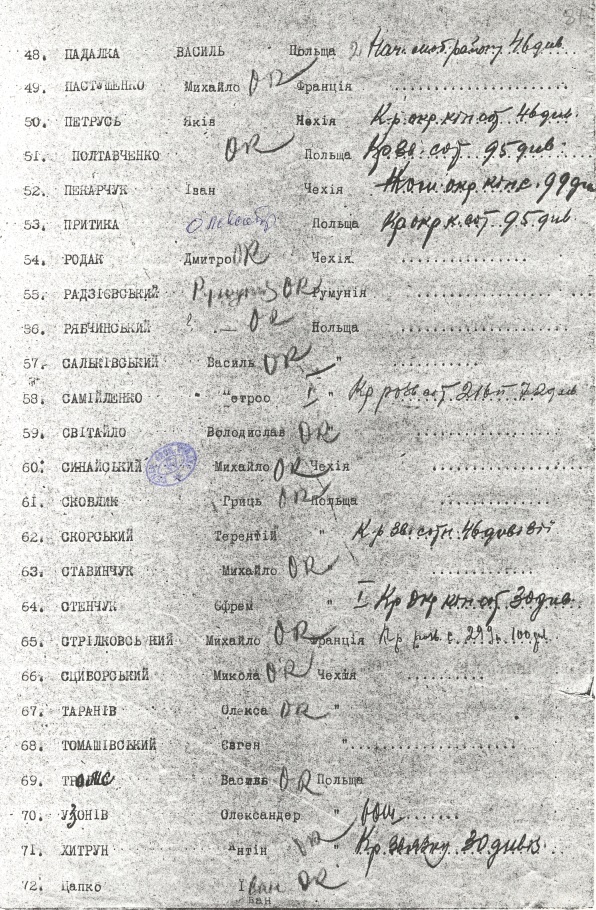 34
48. ПАДАЛКА ВАСИЛЬ Польща 2 Нач. моб. району 46 див.
49. ПАСТУШЕНКО Михайло OR Франція ....................
50. ПЕТРУСЬ Яків Чехія Кр. окр. кін. сот. 46 див.
51. ПОЛТАВЧЕНКО OR Польща сот. 95 див.
52. ПЕКАРЧУК Іван Чехія окр. кінс. 99 див
53. ПРИТИКА Олександр Польща Кр окр к. сот. 95 див
54. РОДАК Дмитро OR Чехія ................
55. РАДЗІЄВСЬКИЙ OR Румунія
56. РЯБЧИНСЬКИЙ ? OR Польща ....................
57. САЛЬКІВСЬКИЙ Василь OR " ................
58. САМІЙЛЕНКО Петро I " Кр розв сот. 216 п 72 див
59. СВІТАЙЛО Володислав OR ................
60. СИНАЙСЬКИЙ Михайло OR Чехія ................
61. СКОВЛИК Гриць OR Польща ................
62. СКОРСЬКИЙ Терентій " Кр зв. сотн. 46 див
63. СТАВИНЧУК Михайло OR ................
64. СТЕНЧУК Єфрем " I Кр Окр кін. сот. 30 див.
65. СТРІЛКОВСЬКИЙ Михайло OR Франція Кр. розв. с. 299 п. 100 д.
66. СЦИБОРСЬКИЙ Микола OR Чехія ............
67. ТАРАНІВ Олекса OR "
68. ТОМАШІВСЬКИЙ Євген "....................
69. Василь OR Польща
70. УЗОНІВ Олександер " ........
71. ХИТРУН Антін OR " Кр. звязку 30 див.
72. Цапко Іван OR
ван